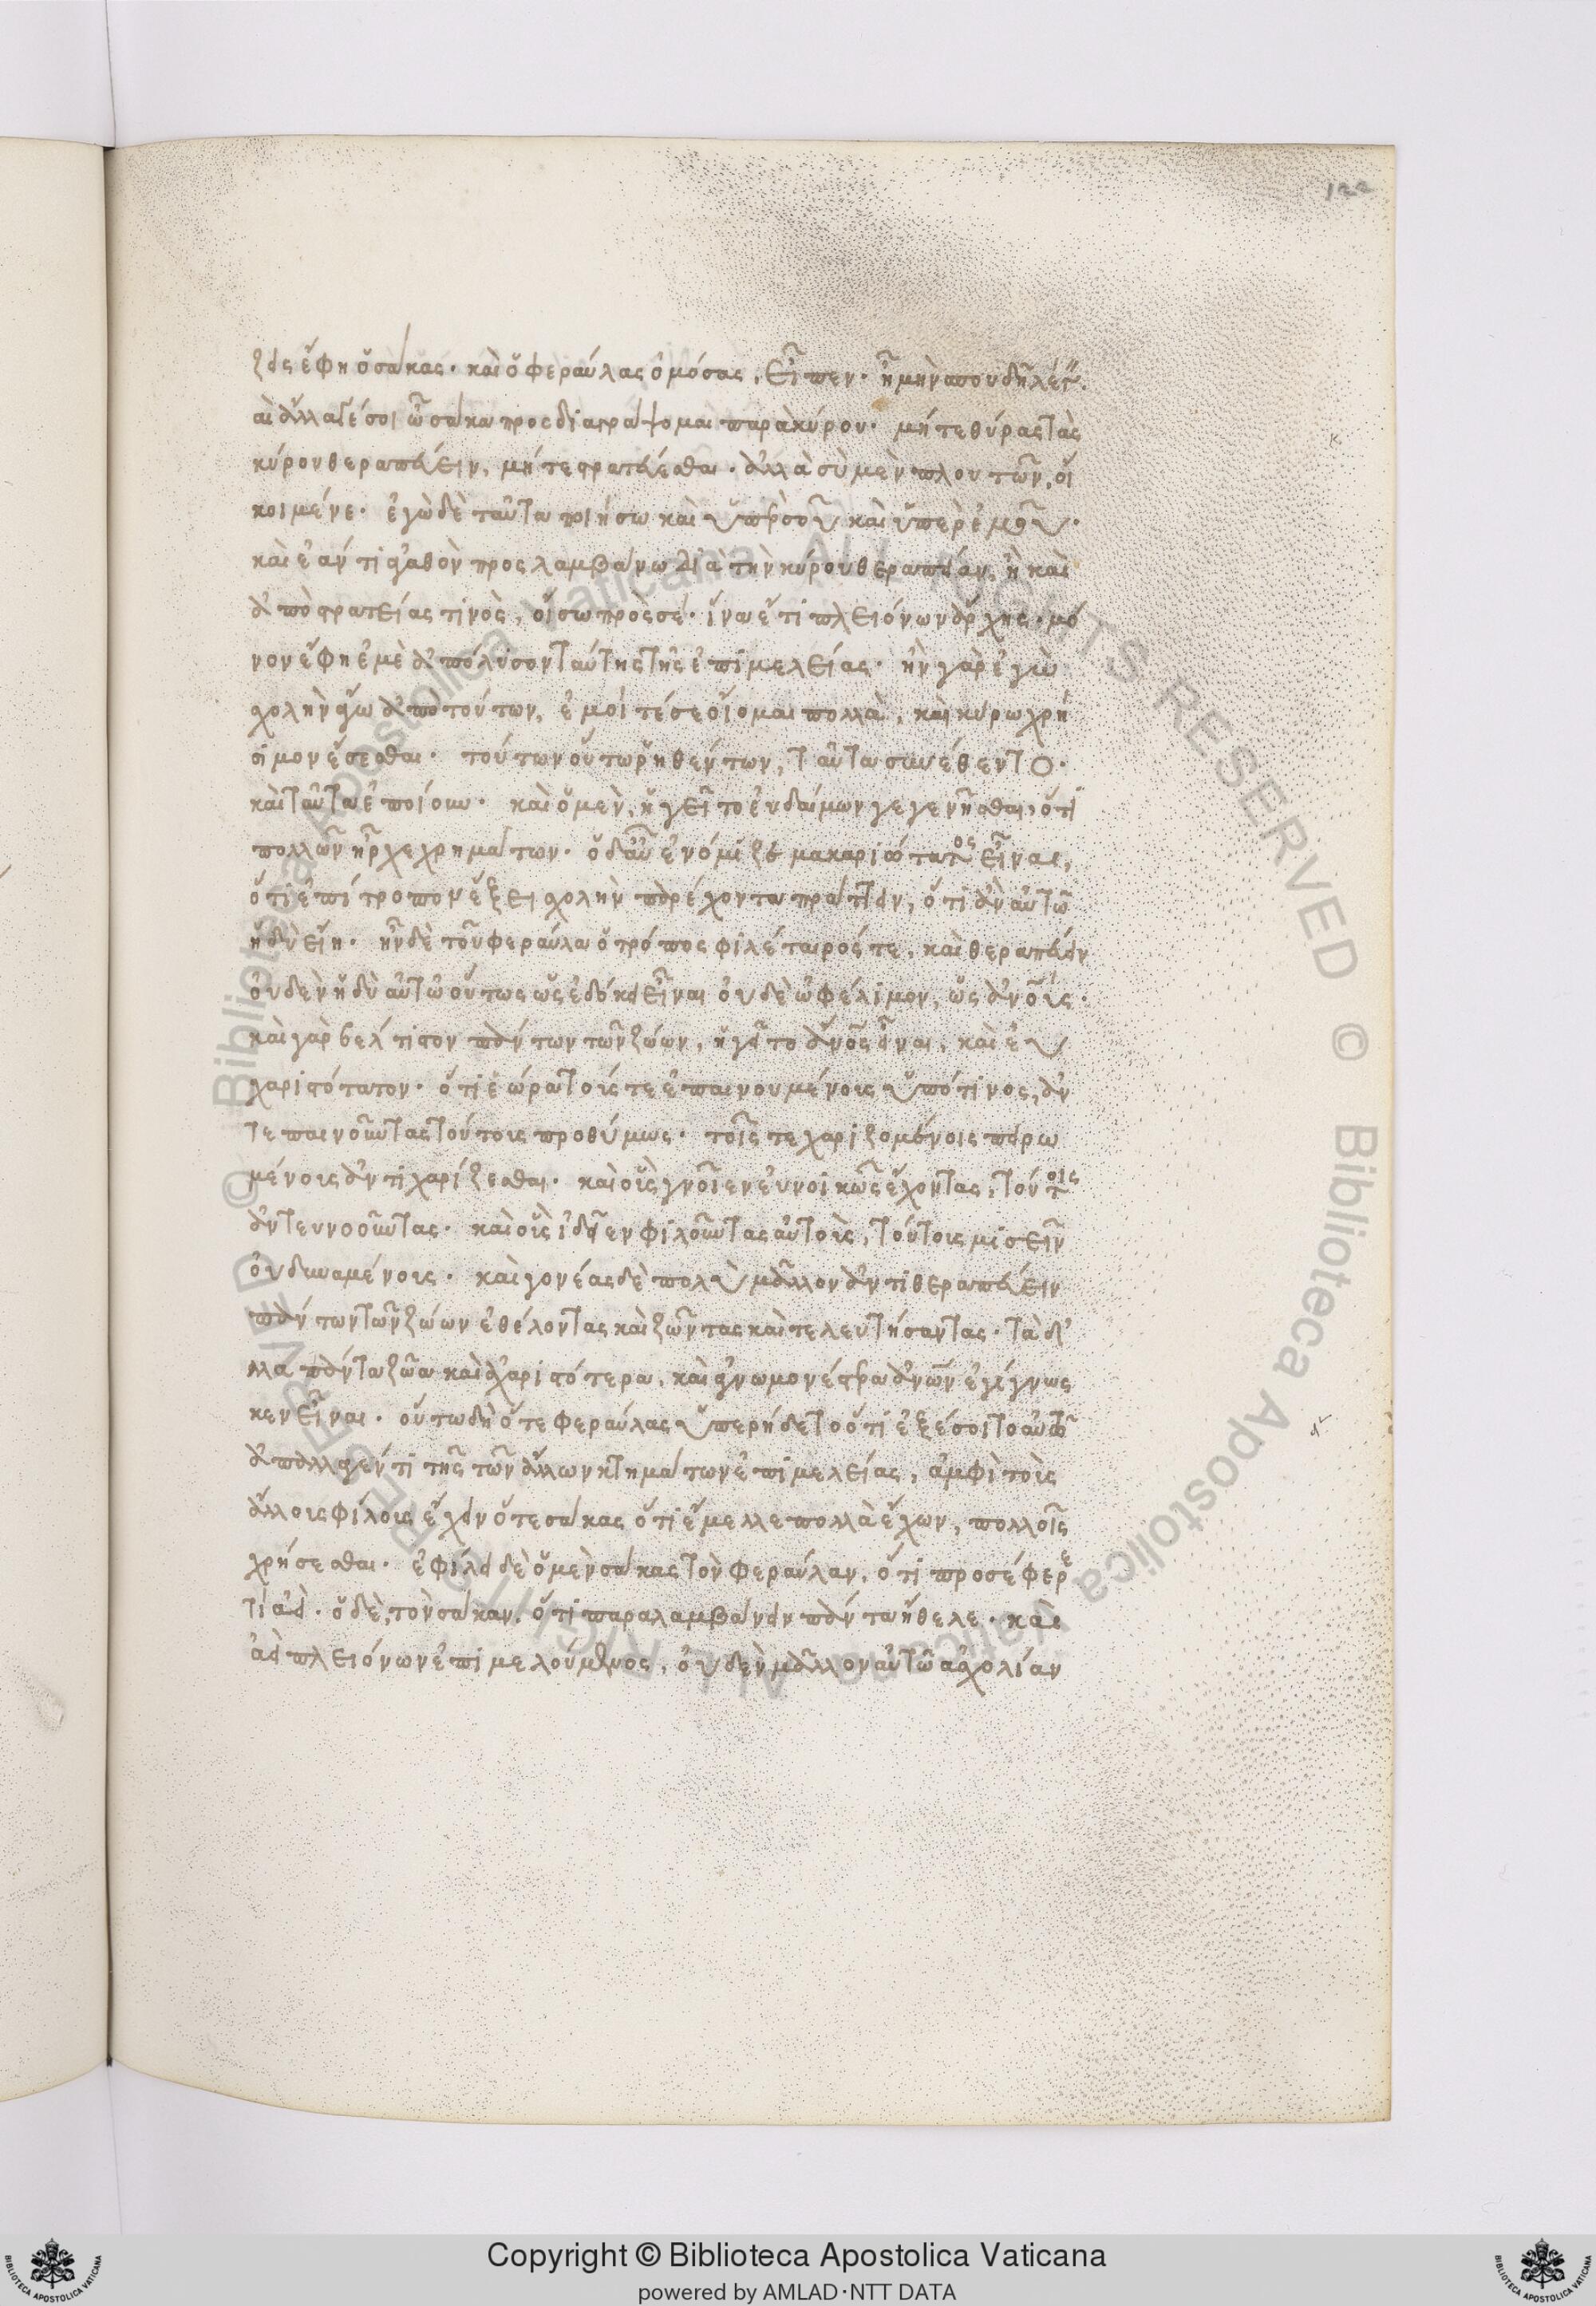 122
ζεις ἔφη ὁ σάκας. καὶ ὁ φεραύλας ὀμόσας, εἶπεν. ἦ μὴν σπουδῇ λέγω.
καὶ ἄλλα γέ σοι ὦ σάκα προσδιαπράξομαι παρὰ κύρου. μήτε θύρας τὰς
κύρου θεραπεύειν, μήτε στρατεύεσθαι. ἀλλὰ σὺ μὲν πλουτῶν, οἴ
κοι μένε. ἐγὼ δὲ ταῦτα ποιήσω καὶ ὑπὲρ σοῦ καὶ ὑπὲρ ἐμοῦ.
καὶ ἐάν τι ἀγαθὸν προσλαμβάνω διὰ τὴν κύρου θεραπείαν, ἢ καὶ
ἀπὸ στρατείας τινὸς, οἴσω πρὸς σέ. ἵνα ἔτι πλειόνων ἄρχῃς. μό
νον ἔφη ἐμὲ ἀπόλυσον ταύτης τῆς ἐπιμελείας. ἢν γὰρ ἐγὼ
σχολὴν ἄγω ἀπὸ τούτων, ἐμοί τέ σε οἴομαι πολλὰ, καὶ κύρω χρή
σιμον ἔσεσθαι. τούτων οὕτω ῥηθέντων, ταῦτα συνέθεντο.
καὶ ταῦτα ἐποίουν. καὶ ὁ μὲν, ἡγεῖτο εὐδαίμων γεγενῆσθαι, ὅτι
πολλῶν ἦρχε χρημάτων. ὁ δ' αὖ ἐνόμιζε μακαριώτατος εἶναι,
ὅτι ἐπίτροπον ἕξει σχολὴν παρέχοντα πράττειν, ὅτι ἂν αὐτῶ
ἡδὺ εἴη. ἦν δὲ τοῦ φεραύλα ὁ τρόπος φιλέταιρός τε, καὶ θεραπεύειν
οὐδὲν ἡδὺ αὐτῶ οὕτως ὡς ἐδόκει εἶναι οὐδὲ ὠφέλιμον, ὡς ἀνοις.
καὶ γὰρ βέλτιστον πάντων τῶν ζώων, ἡγεῖτο ἄνον εἶναι, καὶ εὐ
χαριστότατον. ὅτι ἑώρα τούς τε ἐπαινουμένοις ὑπό τινος, ἀν
τεπαινοῦντας τούτοις προθύμως. τοῖς τε χαριζομένοις πειρω
μένοις ἀντιχαρίζεσθαι. καὶ οὓς γνοῖεν εὐνοικῶς ἔχοντας, τούτοις
ἀντευνοοῦντας. καὶ οὓς ἰδεῖεν φιλοῦντας αὐτοὺς, τούτοις μισεῖν
οὐ δυναμένοις. καὶ γονέας δὲ πολὺ μᾶλλον ἀντιθεραπεύειν
πάντων τῶν ζώων ἐθέλοντας καὶ ζῶντας καὶ τελευτήσαντας. τὰ δ' ἄ
λλα πάντα ζῶα καὶ ἀχαριστότερα, καὶ ἀγνωμονέστερα ἀνων ἐγίγνωσ
κεν εἶναι. οὕτω δὴ ὅ τε φεραύλας ὑπερήδετο ὅτι ἐξέσοιτο αὐτῶ
ἀπαλλαγέντι τῆς τῶν ἄλλων κτημάτων ἐπιμελείας, ἀμφὶ τοὺς
ἄλλοις φίλοις ἔχειν ὅ τε σάκας ὅτι ἔμελλε πολλὰ ἔχων, πολλοῖς
χρήσεσθαι. ἐφίλει δὲ ὁ μὲν σάκας τὸν φεραύλαν, ὅτι προσέφερε
τὶ ἀεί. ὁ δὲ, τὸν σάκαν, ὅτι παραλαμβάνειν πάντα ἤθελε. καὶ
ἀεὶ πλειόνων ἐπιμελούμενος, οὐδὲν μᾶλλον αὐτῶ ἀσχολίαν
Copyright © Biblioteca Apostolica Vaticana
powered by AMLAD·NTT DATA